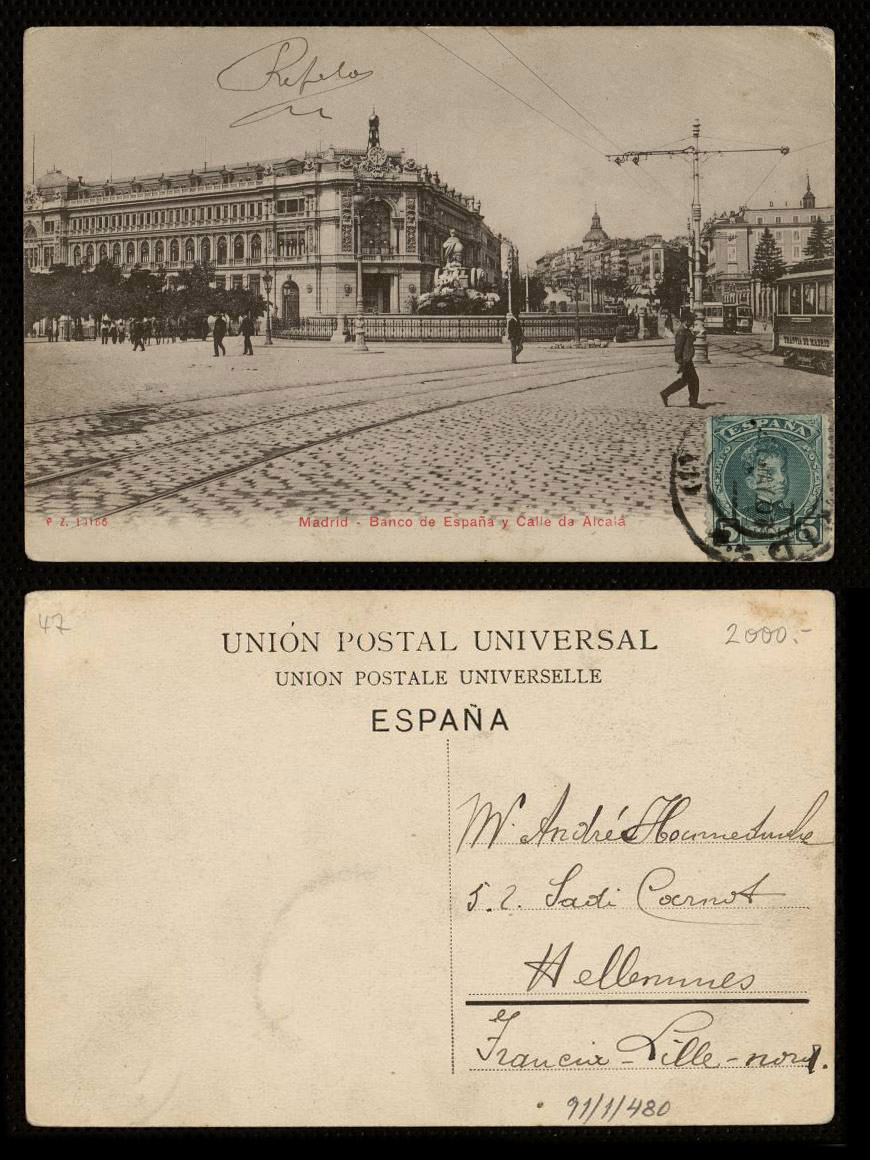 Repelo
TRANVIA DE MADRID
ESPAÑA
P. Z. 13166
Madrid - Banco de España y Calle de Alcalá
5 5
47
2000.-
UNIÓN POSTAL UNIVERSAL
UNION POSTALE UNIVERSELLE
ESPAÑA
Mr. André
5. r. Sadi Carnot
Hellemmes
Francia - Lille - nord.
91/1/480